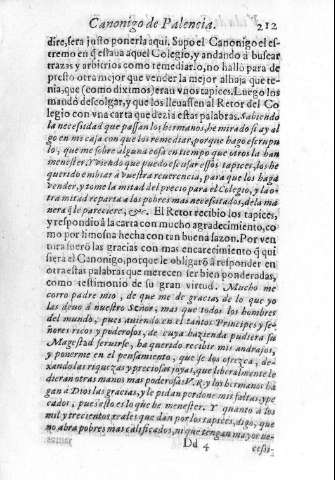 Canonigo de Palencia. 212
dire, sera justo ponerla aqui. Supo el Canonigo el es-
tremo en q̃ estaua aquel Colegio, y andando a buscar
trazas y arbitrios como remediarlo, no hallo para de
presto otra mejor que vender la mejor alhaja que te-
nia, que (como diximos) eran vnos tapices. Luego los
mandò descolgar, y que los lleuassen al Retor del Co
legio con vna carta que dezia estas palabras. Sabiendo
la necesidad que passan los hermanos, he mirado si ay al
go en mi casa con que los remediar, porque hago escrupu
lo, que me sobre alguna cosa en tiempo que otros la han
menester. Y viendo que puedo escusar essos tapices, los he
querido embiar à vuestra reuerencia, para que los haga
vender, y tome la mitad del precio para el Colegio, y la o-
tra mitad reparta a los pobres mas necesitados, de la ma
nera q̃ le pareciere, &c. El Retor recibio los tapices,
y respondiò a la carta con mucho agradecimiento, co
mo por limosna hecha con tan buena sazon. Por ven
tura fuerõ las gracias con mas encarecimiento q̃ qui
siera el Canonigo, porque le obligarõ à responder en
otra estas palabras que merecen ser bien ponderadas,
como testimonio de su gran virtud. Mucho me
corro padre mio, de que me dè gracias de lo que yo
las deuo à nuestro Señor, mas que todos los hombres
del mundo, pues auiendo en el tantos Principes y se-
ñores ricos y poderosos, de cuya hazienda pudiera su
Magestad seruirse, ha querido recibir mis andrajos,
y ponerme en el pensamiento, que se los ofrezca, de-
xando las riquezas y preciosas joyas, que liberalmente le
dieran otras manos mas poderosas. V.R. y los hermanos hà
gan a Dios las gracias, y le pidan perdone mis faltas, y pe
cados, pues esto es lo que he menester. Y quanto à los
mil y trecientos reales que dan por los tapices, digo, que
no abra pobres mas calificados, ni que tengan mayor ne-
Dd 4 cessi-